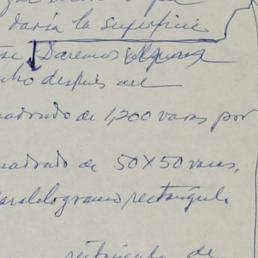 daría la superficie
se Daremos algunas
cho después de
cuadrado de 1,200 varas por
cuadrado de 50×50 varas,
paralelogramo rectángulo
rectángulo de